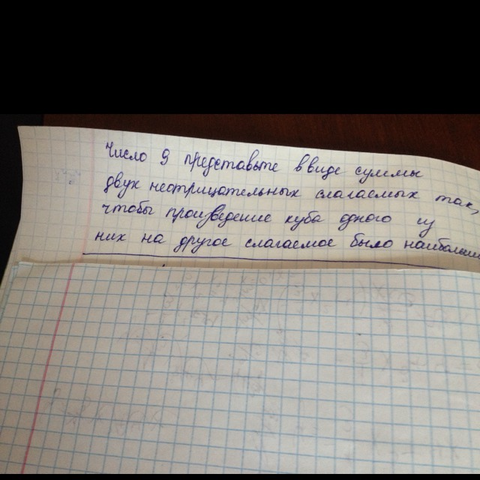 Число 9 представьте в виде суммы
двух неотрицательных слагаемых так,
чтобы произведение куба одного из
них на другое слагаемое было